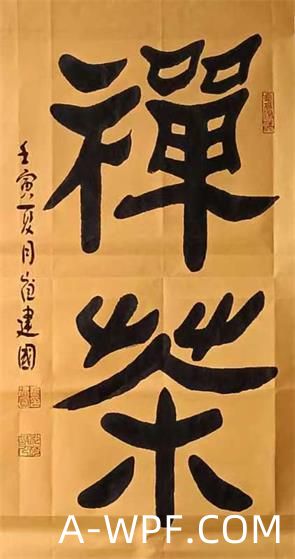 禪茶
壬寅夏月崔建國
A-WPF.COM